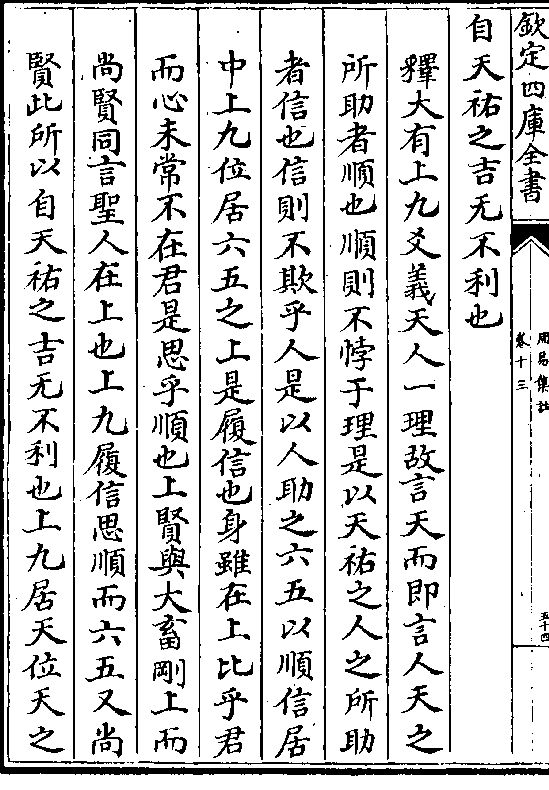 欽定四庫全書
周易集註
卷十三
五十四
自天祐之吉无不利也
釋大有上九爻義天人一理故言天而即言人天之
所助者順也順則不悖于理是以天祐之人之所助
者信也信則不欺乎人是以人助之六五以順信居
中上九位居六五之上是履信也身雖在上比乎君
而心未常不在君是思乎順也上賢與大畜剛上而
尚賢同言聖人在上也上九履信思順而六五又尚
賢此所以自天祐之吉无不利也上九居天位天之